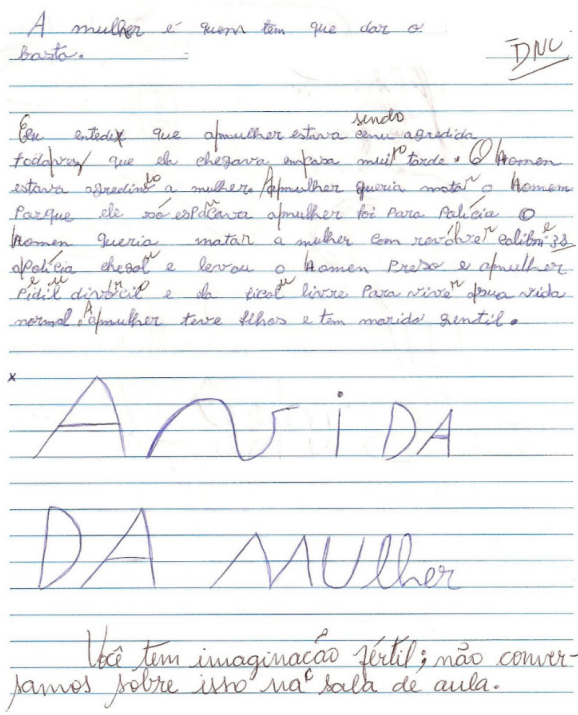 A mulher é quem tem que dar o
basta.
DNC
sindo
Eeu entedex que apmulher estava cenu agredida
todapvez que ela chegava empasa muito tarde. O homen
estava agredindo a mulhere Apmulher queria matar o homem
Parque ele só espacava apmulher foi Para Palicia O
homen queria matar a mulher com revólver calibri 38
apolícia chegol e levou o homen Preso e apmulher
Pidil divorcil e ela ficol livre Para viver psua vida
normal. Apmulher teve filhos e tem marido gentil.
x
A viDA
DA MUlher
Você tem imaginação fértil; não conver-
samos sobre isso na sala de aula.